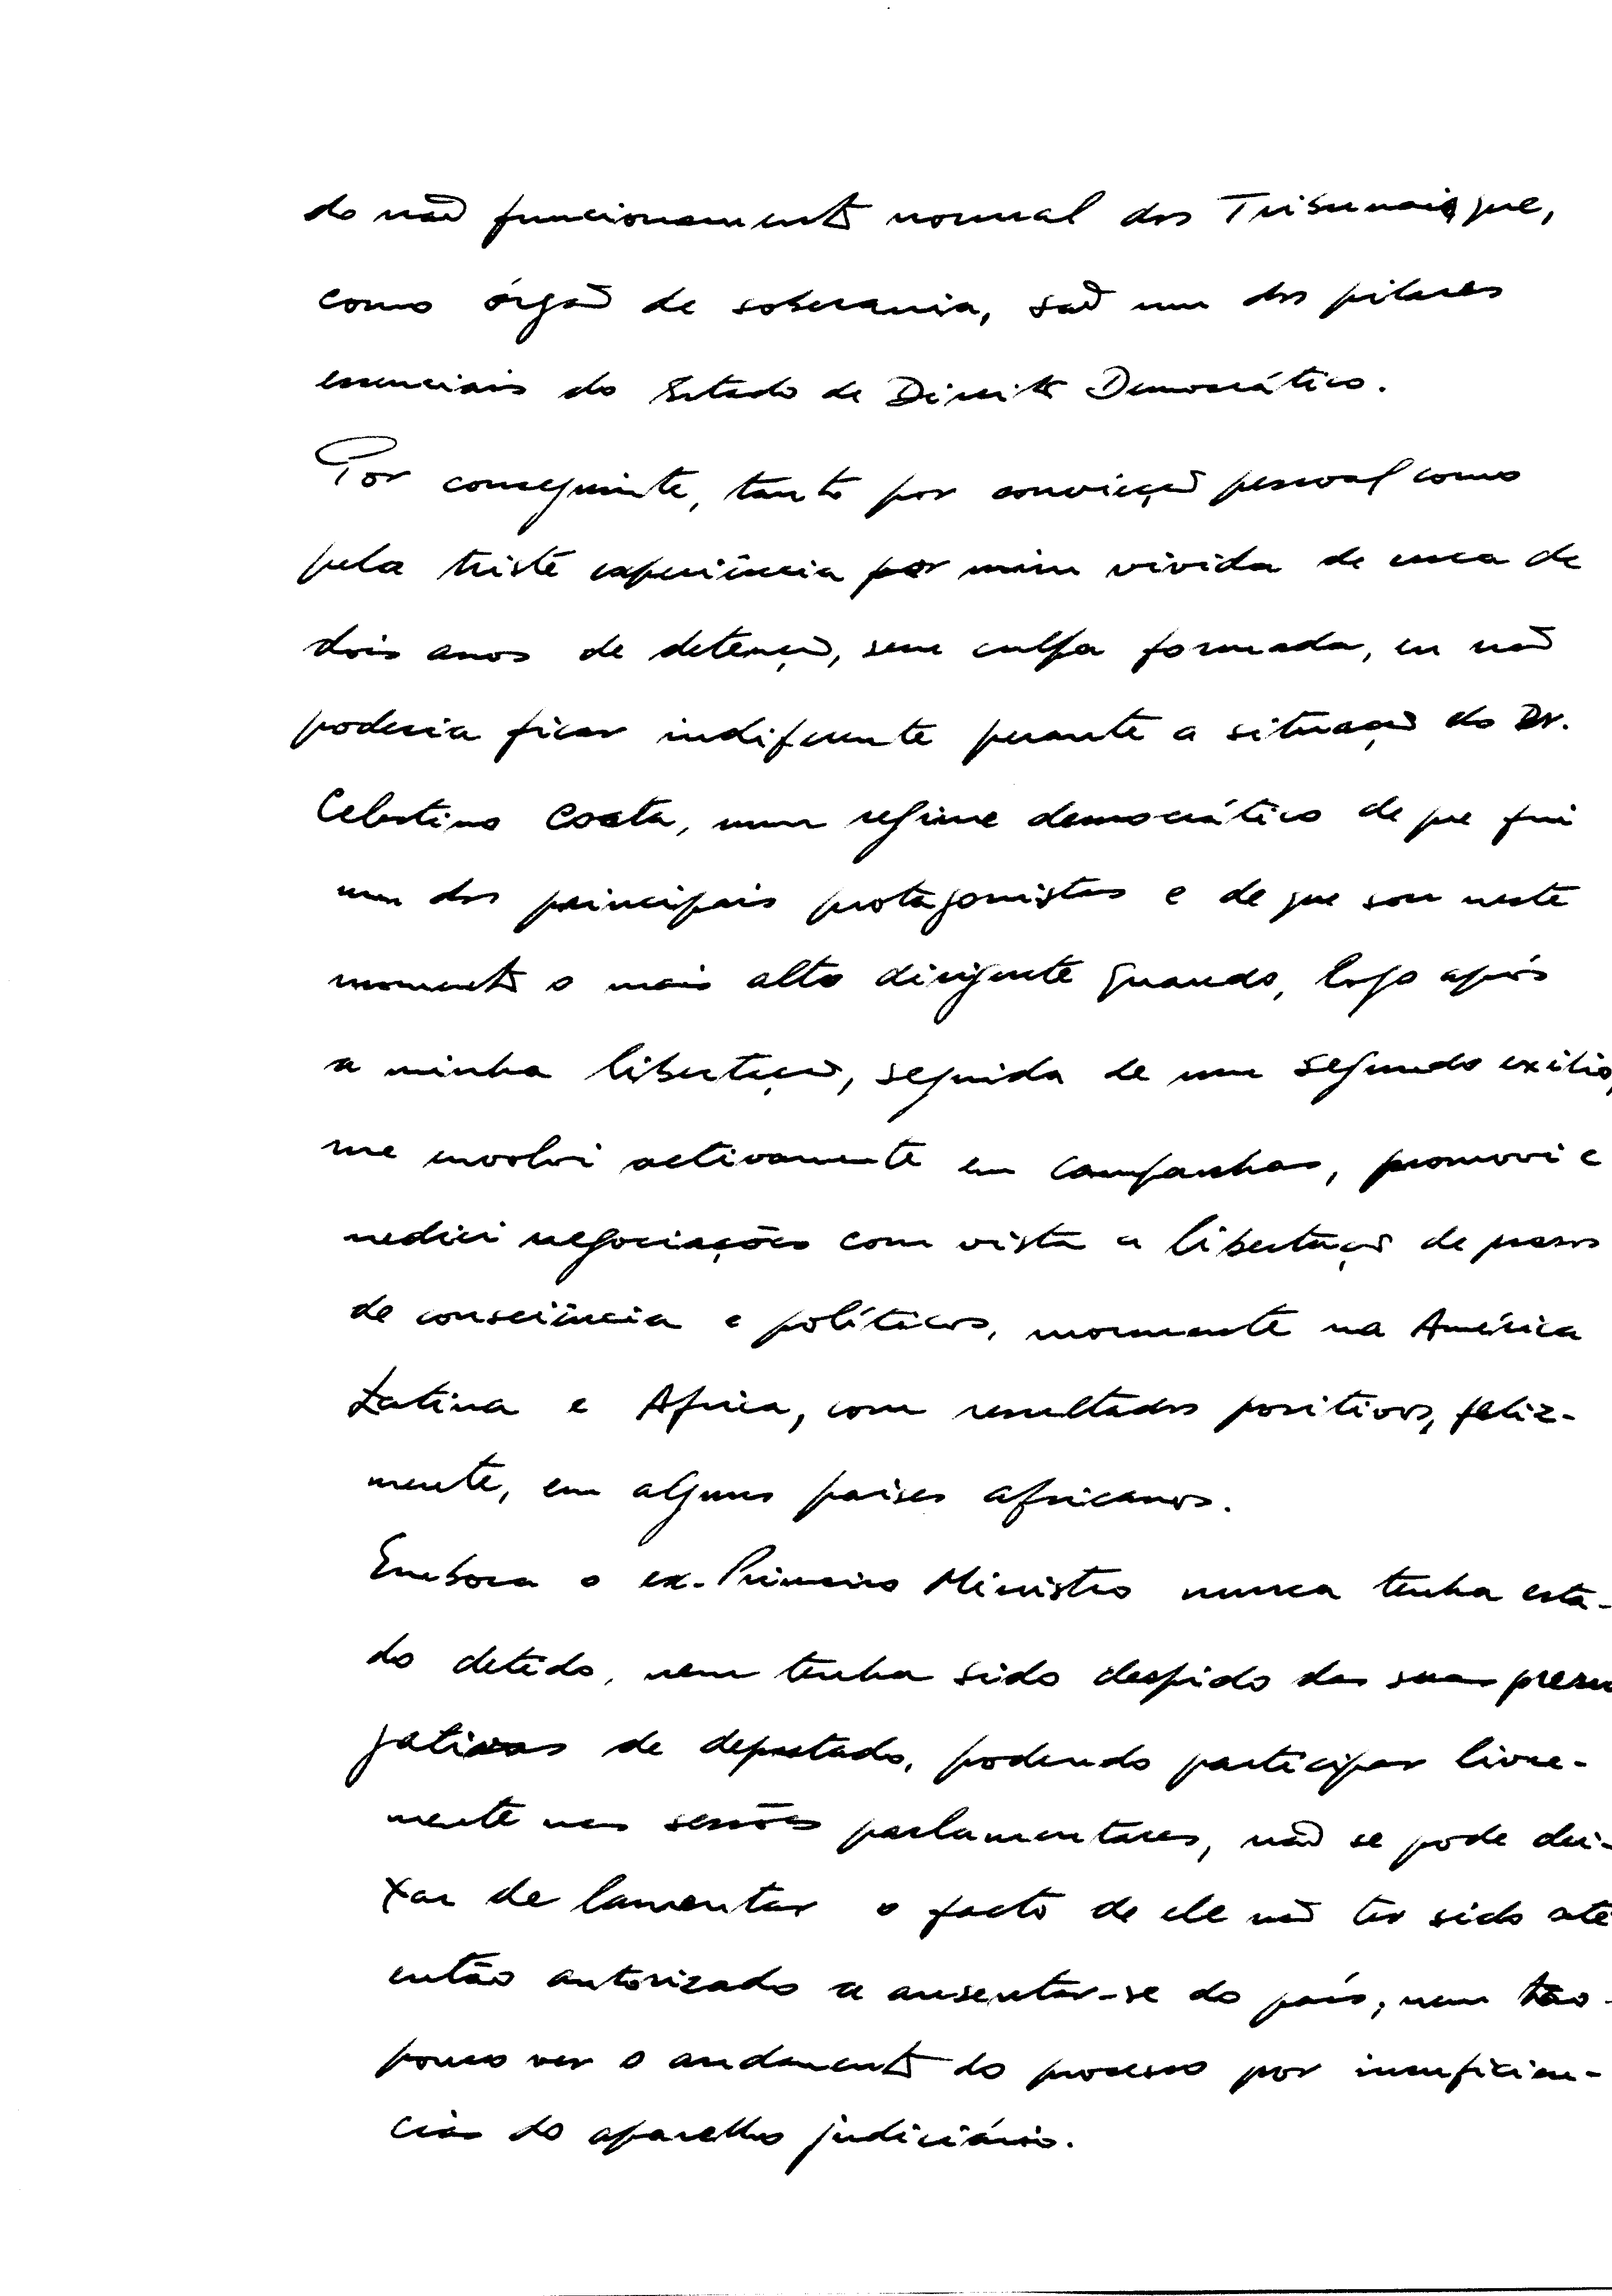 do não funcionamento normal dos Tribunais que,
como órgão de soberania, são um dos pilares
essenciais do Estado de Direito Democrático.
Por conseguinte, tanto por convicção pessoal como
pela triste experiência por mim vivida de cerca de
dois anos de detenção, sem culpa formada, eu não
poderia ficar indiferente perante a situação do Dr.
Celestino Costa, num regime democrático de que fui
um dos principais protagonistas e de que sou neste
momento o mais alto dirigente quando, logo após
a minha libertação, seguida de um segundo exílio,
me envolvi activamente em campanhas, promovi e
mediei negociações com vista a libertação de presos
de consciência e políticos, mormente na América
Latina e Africa, com resultados positivos, feliz-
mente, em alguns paises africanos.
Embora o ex-Primeiro Ministro nunca tenha esta-
do detido, nem tenha sido despido das suas prerro
gativas de deputado, podendo participar livre-
mente nas sessões parlamentares, não se pode dei-
xar de lamentar o facto de ele não ter sido até
então autorizado a ausentar-se do país, nem tão-
pouco ver o andamento do processo por insuficiên-
cias do aparelho judiciário.